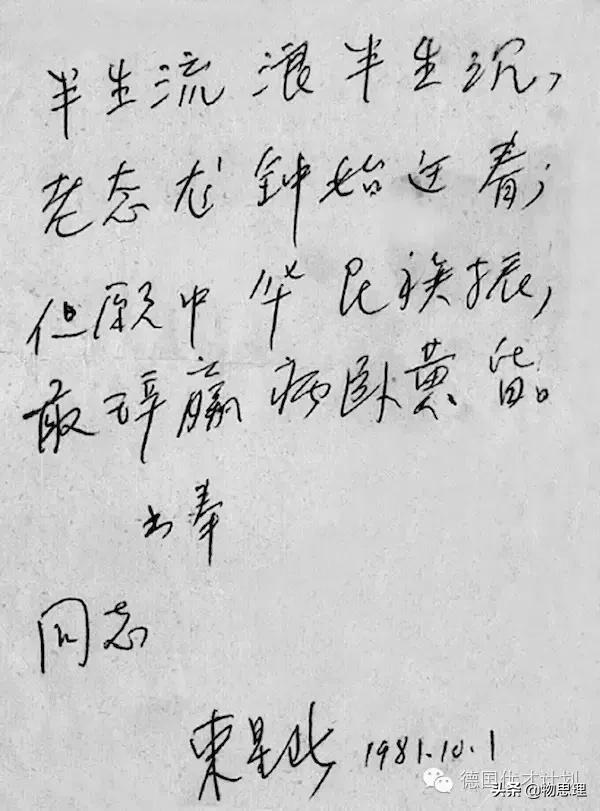 半生流浪半生沉,
老态龙钟始迎春;
但愿中华民族振,
敢辞羸病卧黄昏。
书奉
同志
束星北 1981.10.1
德国 才计划
头条@物思理